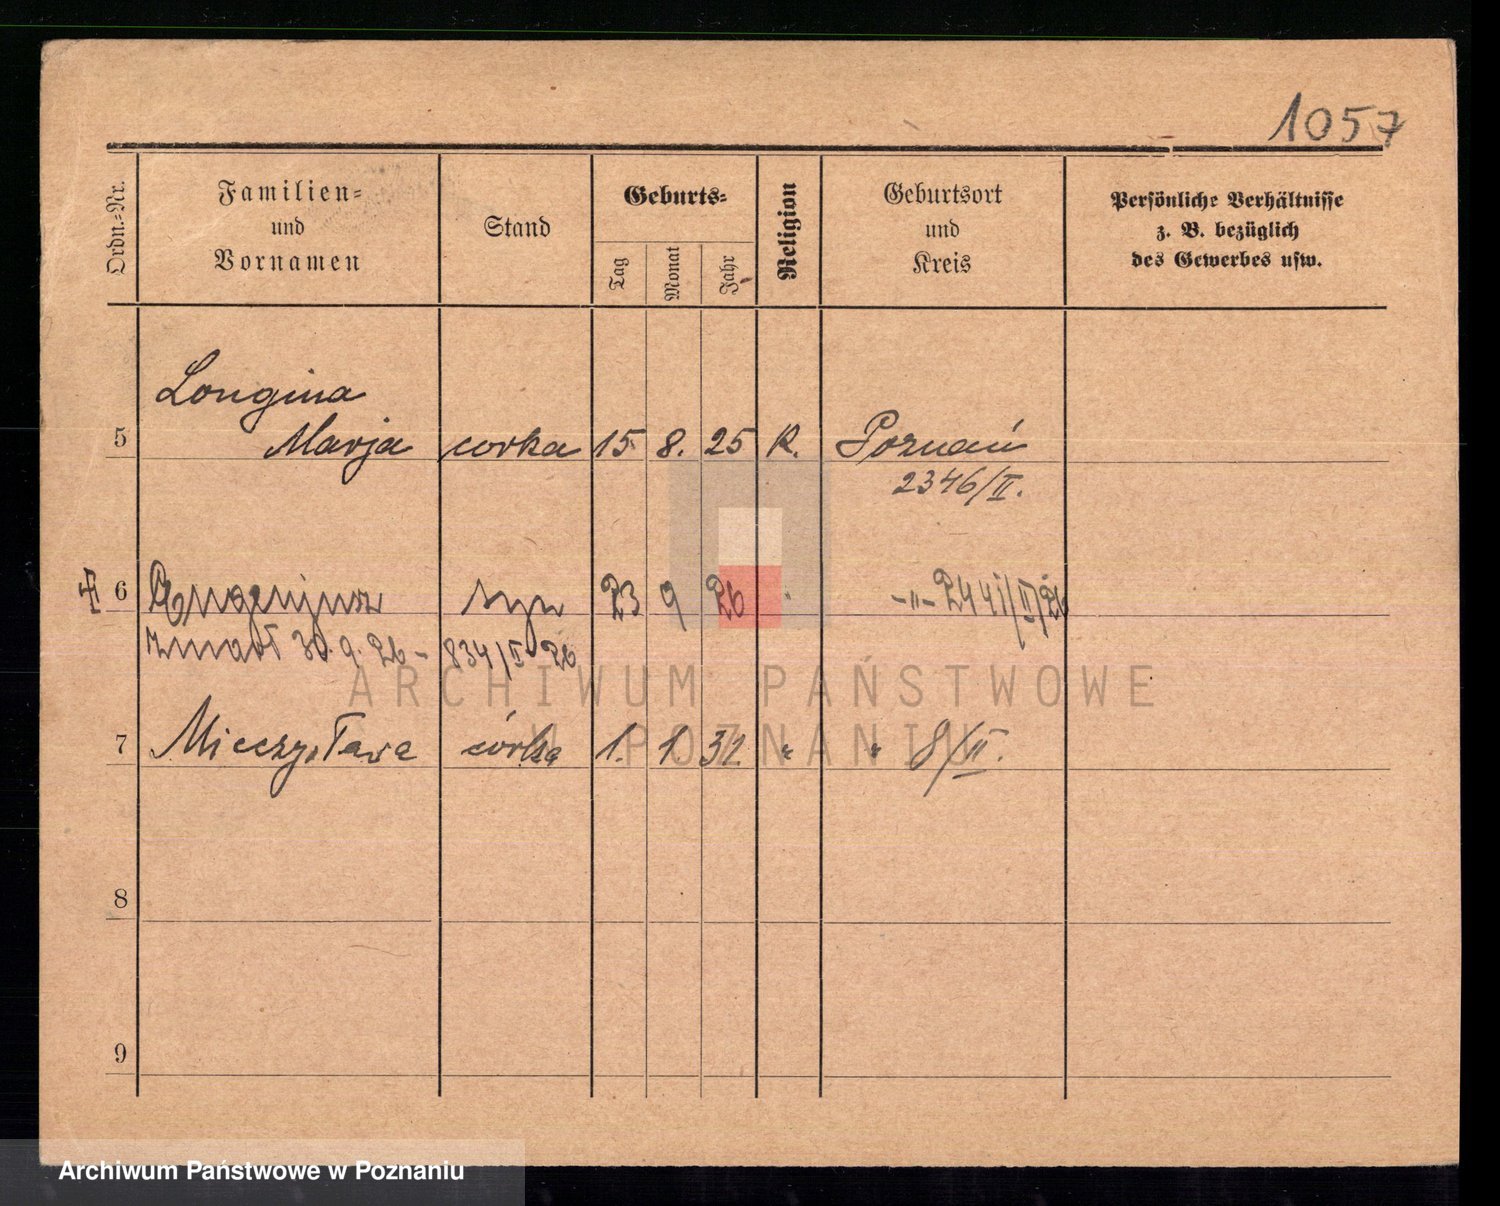 1057
Ordn.=Nr.
Familien=
und
Vornamen
Stand
Geburts=
Tag
Monat
Jahr
Religion
Geburtsort
und
Kreis
Persönliche Verhältnisse
z. B. bezüglich
des Gewerbes usw.
Longina
5 Marja corka 15 8. 25 R. Poznań
2346/II.
6 Eugenjusz syn 23 9 26 -"- 2441/II/26
zmarł 30.9.26- 834/II 26
ARCHIWUM PAŃSTWOWE
W POZNANIU
7 Mieczysława córka 1. 1. 32 " " 8/II.
8
9
Archiwum Państwowe w Poznaniu